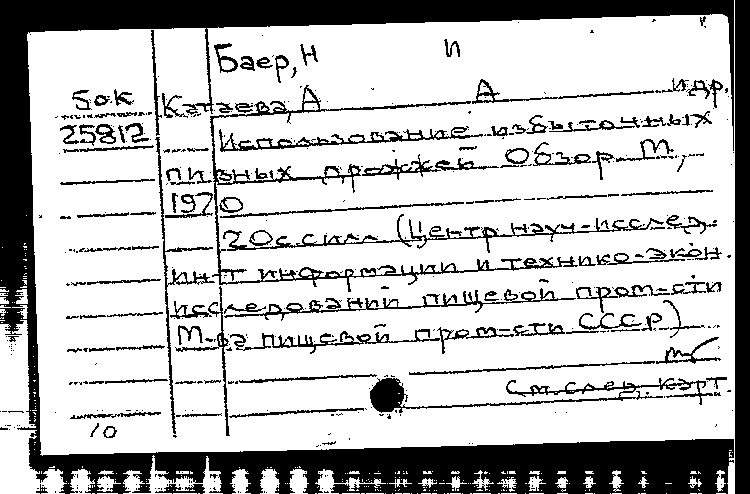 Баер, Н И
Бок Катаева, А А и др.
25812 Использование избыточных
пивных дрожжей Обзор М,
1970
20с с илл (Центр науч-исслед.
ин-т информации и технико-экон.
исследований пищевой пром-сти
М-ва пищевой пром-сти СССР)
См. след. карт.
10